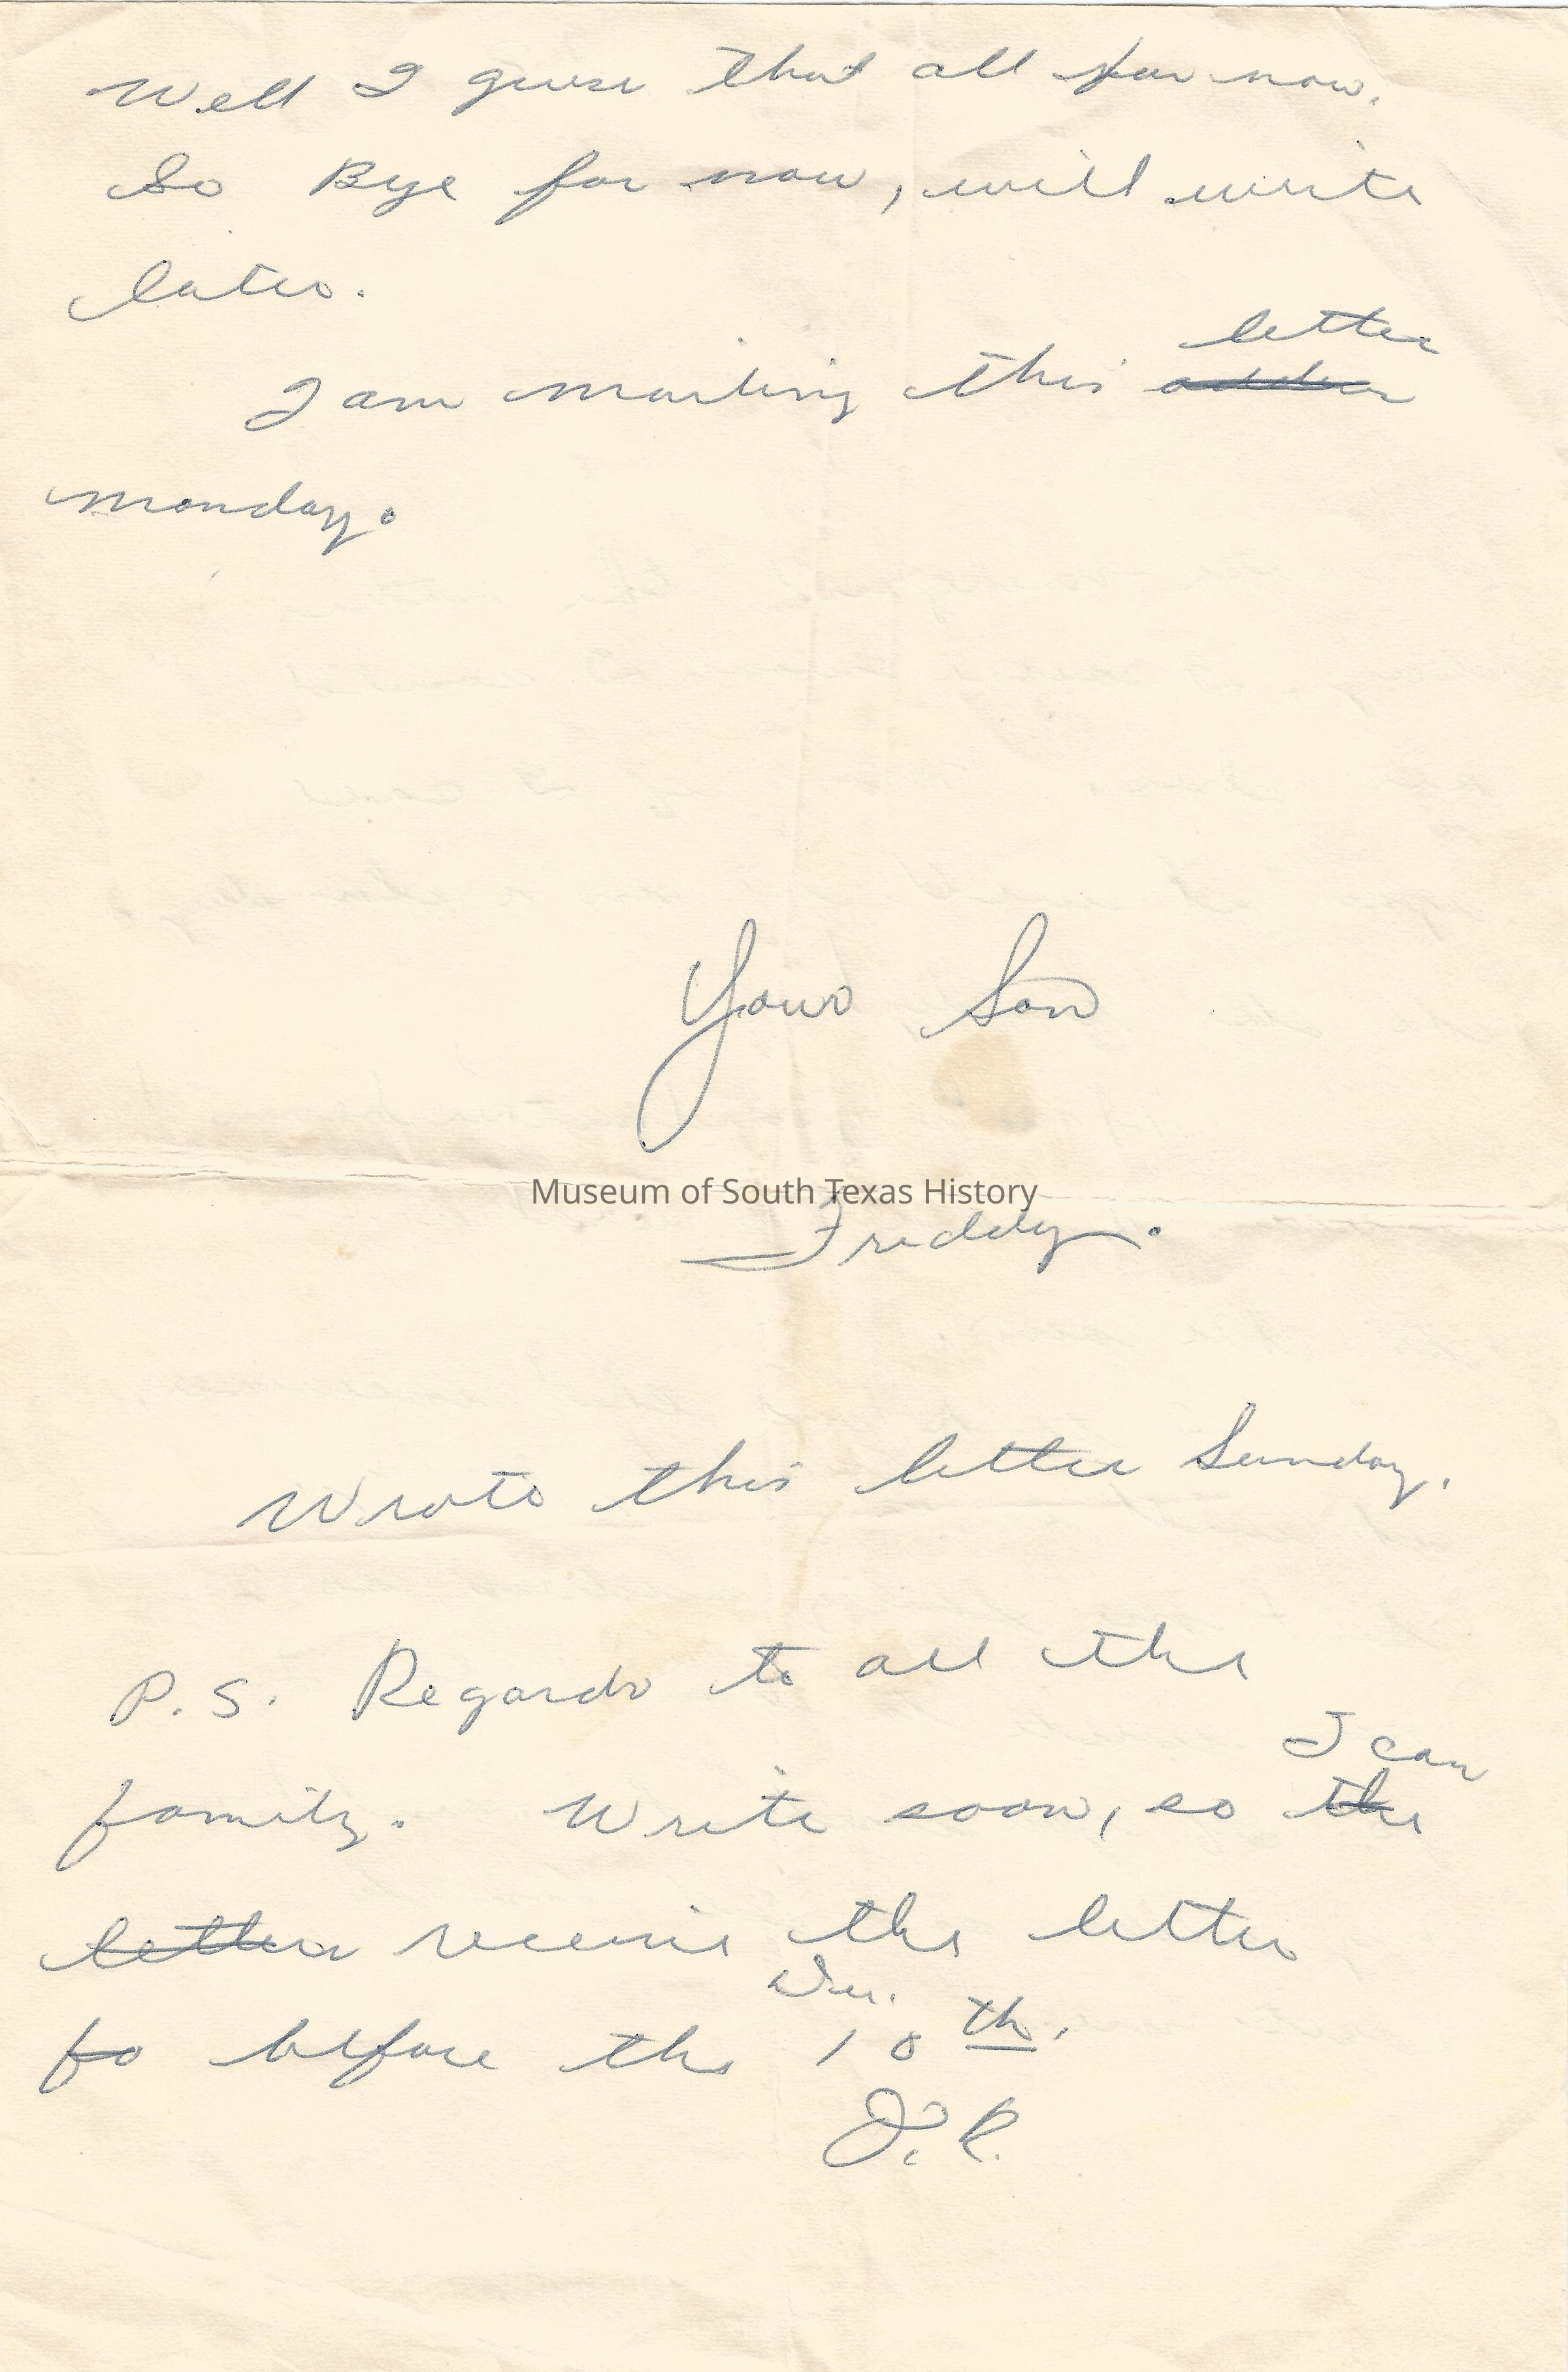 Well I guess that all for now.
So Bye for now, will write
later.
I am mailing this letter
monday.
Your Son
Museum of South Texas History
Freddy.
Wrote this letter Sunday.
P.S. Regards to all the
family. Write soon, so the I can
letter receive the letter
fo before the Dec. 10th.
J.R.